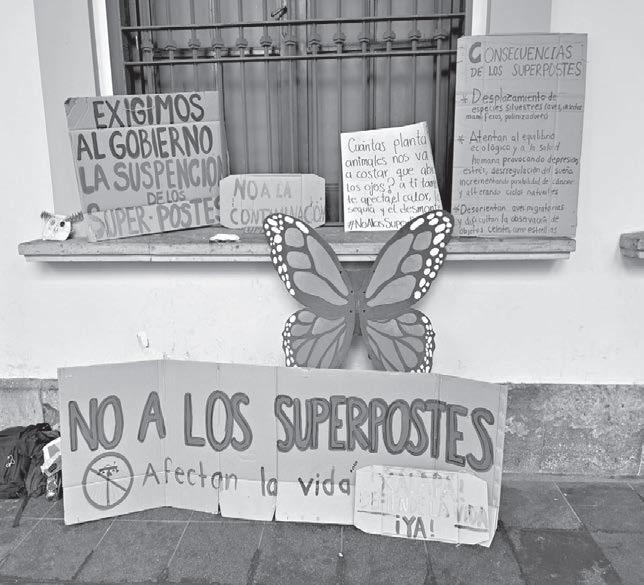 EXIGIMOS
AL GOBIERNO
LA SUSPENCION
DE LOS
SUPER-POSTES
NO A LA
CONTAMINACIÓN
Cuántas planta
animales nos va
a costar que ab
los ojos? a ti tam
te afecta el calor,
sequía y el desmont
#NoMasSuper
CONSECUENCIAS
DE LOS SUPERPOSTES
* Desplazamiento de
especies silvestres (aves,
mamíferos, polinizadores)
* Atentan al equilibrio
ecológico y a la salud
humana provocando depresion,
estrés, desregulación del sueño
incrementando posibilidad de cáncer
y alterando ciclos naturales
* Desorientan aves migratorias
y dificultan la observación de
objetos celestes, como estrellas
NO A LOS SUPERPOSTES
Afectan la vida
VIDA
¡YA!